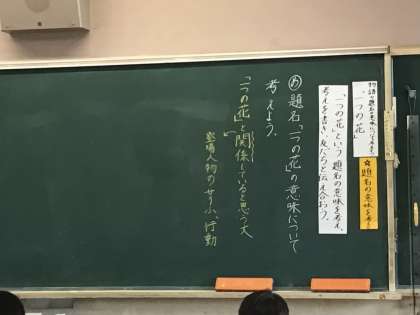 物語の題名の意味を考えよう
「一つの花」
☆題名の意味を考え
「一つの花」という題名の意味を考え、
考えを書き、友だちと伝え合おう。
め 題名「一つの花」の意味について
考えよう。
「一つの花」と関係していると思う文
登場人物のせりふ、行動